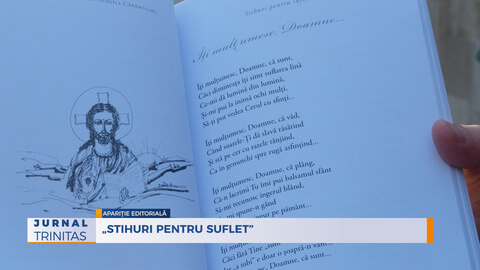 Stihuri pentru
Îți mulțumesc, Doamne...
Îți mulțumesc, Doamne, că sunt,
Căci dimineața îți simt suflarea lină
Ce-mi dă lumină din lumină,
Și-mi pui la inimă ochi mulți,
Să-ți pot vedea Cerul cu sfinți...
Îți mulțumesc, Doamne, că văd,
Când soarele-Ți dă slavă răsărind
Și stă pe cer cu razele tânjind,
Ca în genunchi spre rugă asfințind...
Îți mulțumesc, Doamne, că plâng,
Că-n lacrimi Tu îmi pui balsamul sfânt
Să-mi recunosc îngerul blând,
mi spune-n gând
pe pământ...
Îți mulțumesc, Doamne, că
Căci fără Tine
"a iubi" e doar o
APARIȚIE EDITORIALĂ
JURNAL
TRINITAS
„STIHURI PENTRU SUFLET”